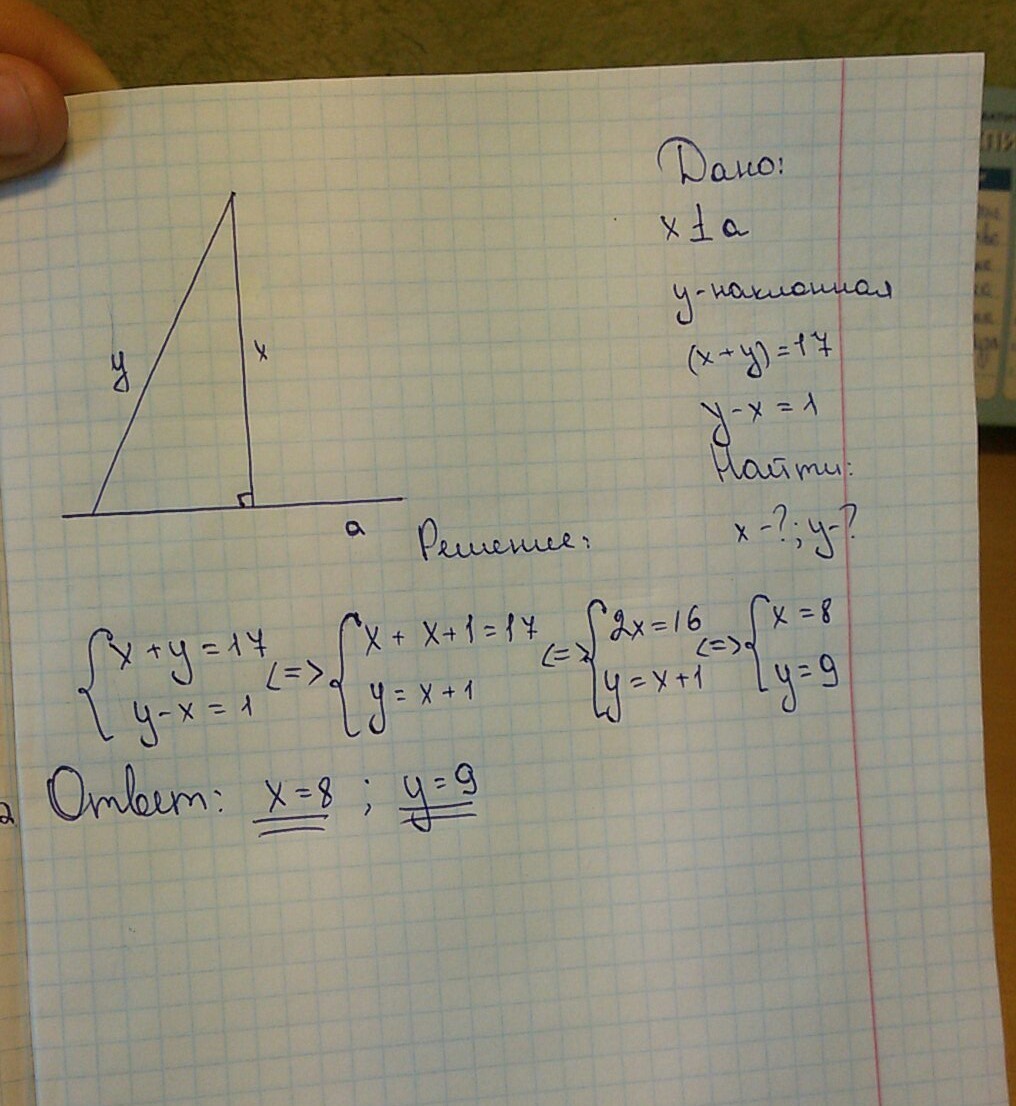 Дано:
x ⊥ a
y - наклонная
(x + y) = 17
y - x = 1
Найти:
x - ?; y - ?
y
x
a
Решение:
{ x + y = 17 <=> { x + x + 1 = 17 <=> { 2x = 16 <=> { x = 8
y - x = 1 y = x + 1 y = x + 1 y = 9
Ответ: x = 8 ; y = 9